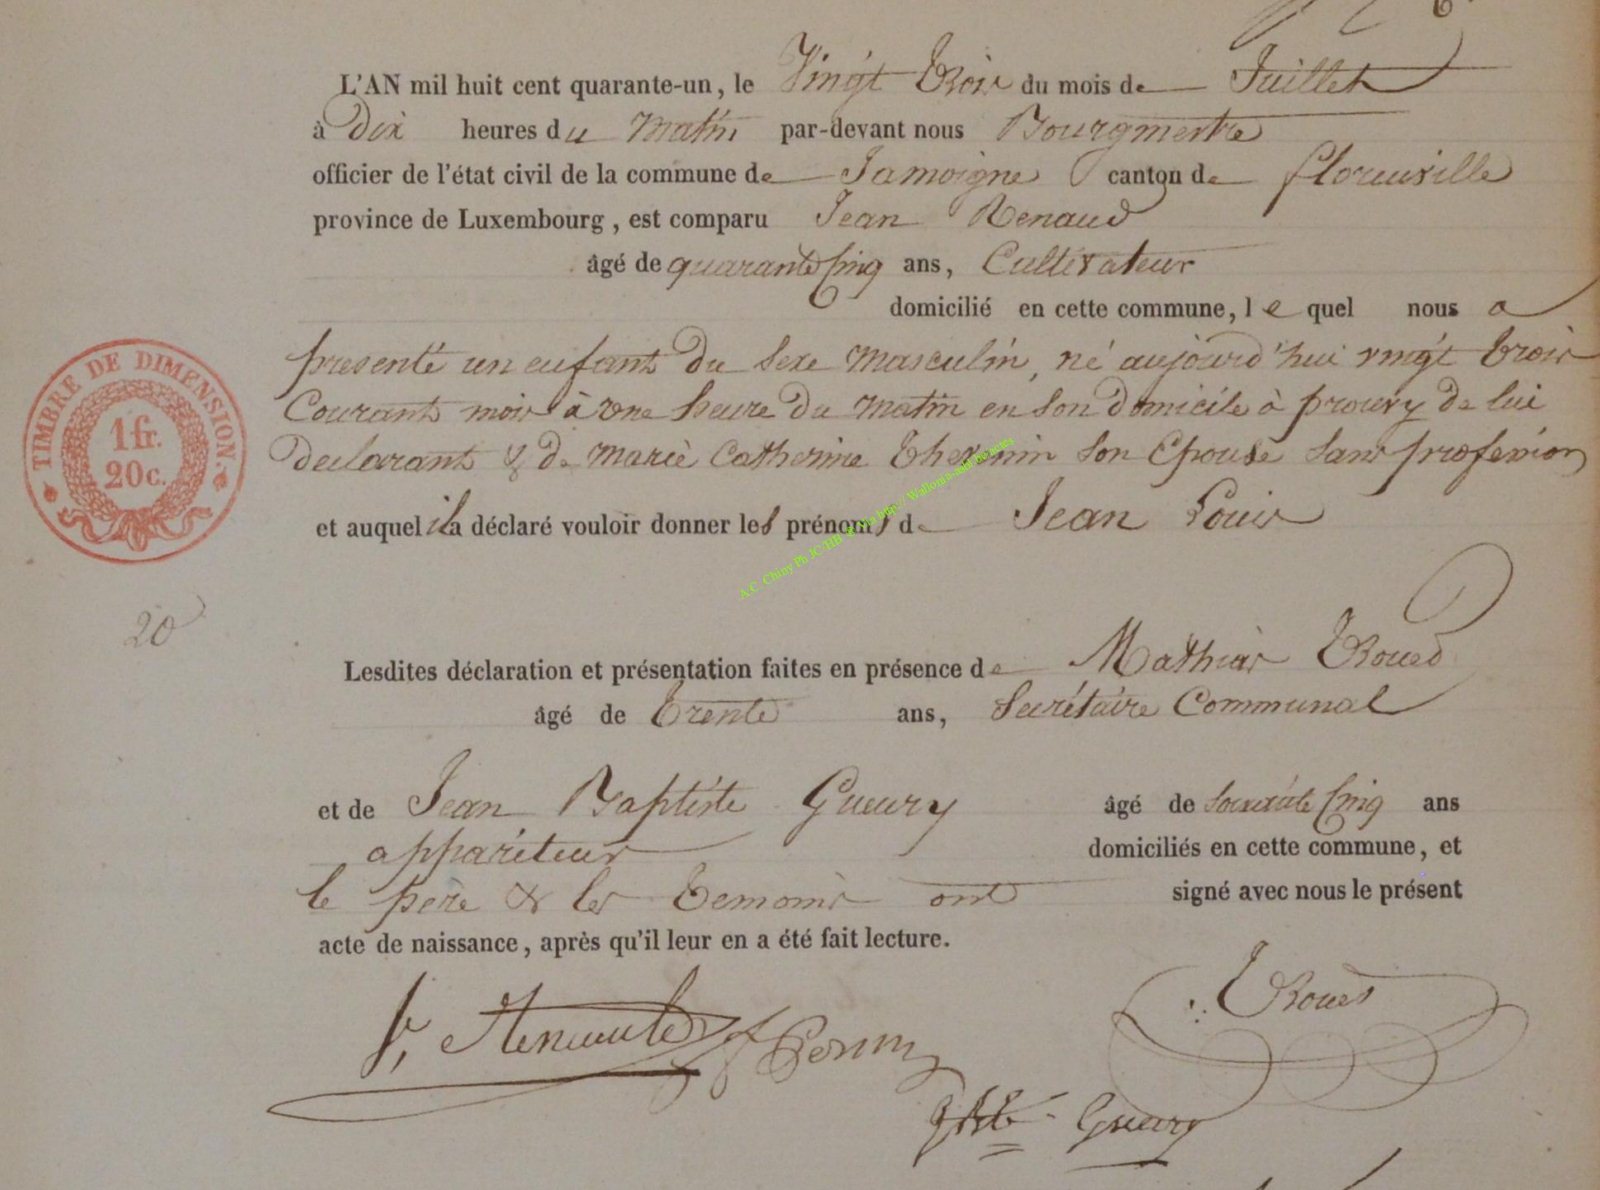 L'AN mil huit cent quarante-un, le Vingt Trois du mois de Juillet
à Dix heures du Matin par-devant nous Bourgmestre
officier de l'état civil de la commune de Jamoigne canton de florenville
province de Luxembourg, est comparu Jean Renaud
âgé de quarante Cinq ans, Cultivateur
domicilié en cette commune, le quel nous a
presenté un enfant du sexe masculin, né aujourd'hui vingt trois
Courant mois à une heure du matin en son domicile à prouvy de lui
declarant & de marie Catherine Thevenin son Epouse sans profession
et auquel il a déclaré vouloir donner les prénoms de Jean Louis
TIMBRE DE DIMENSION.
1 fr.
20 c.
A.C. Chiny Ph JC HB
20
Lesdites déclaration et présentation faites en présence de Mathias Troued
âgé de Trente ans, Secrétaire Communal
et de Jean Baptiste Gueury âgé de soixante Cinq ans
appariteur domiciliés en cette commune, et
le père & les temoins ont signé avec nous le présent
acte de naissance, après qu'il leur en a été fait lecture.
Troued
Gueury